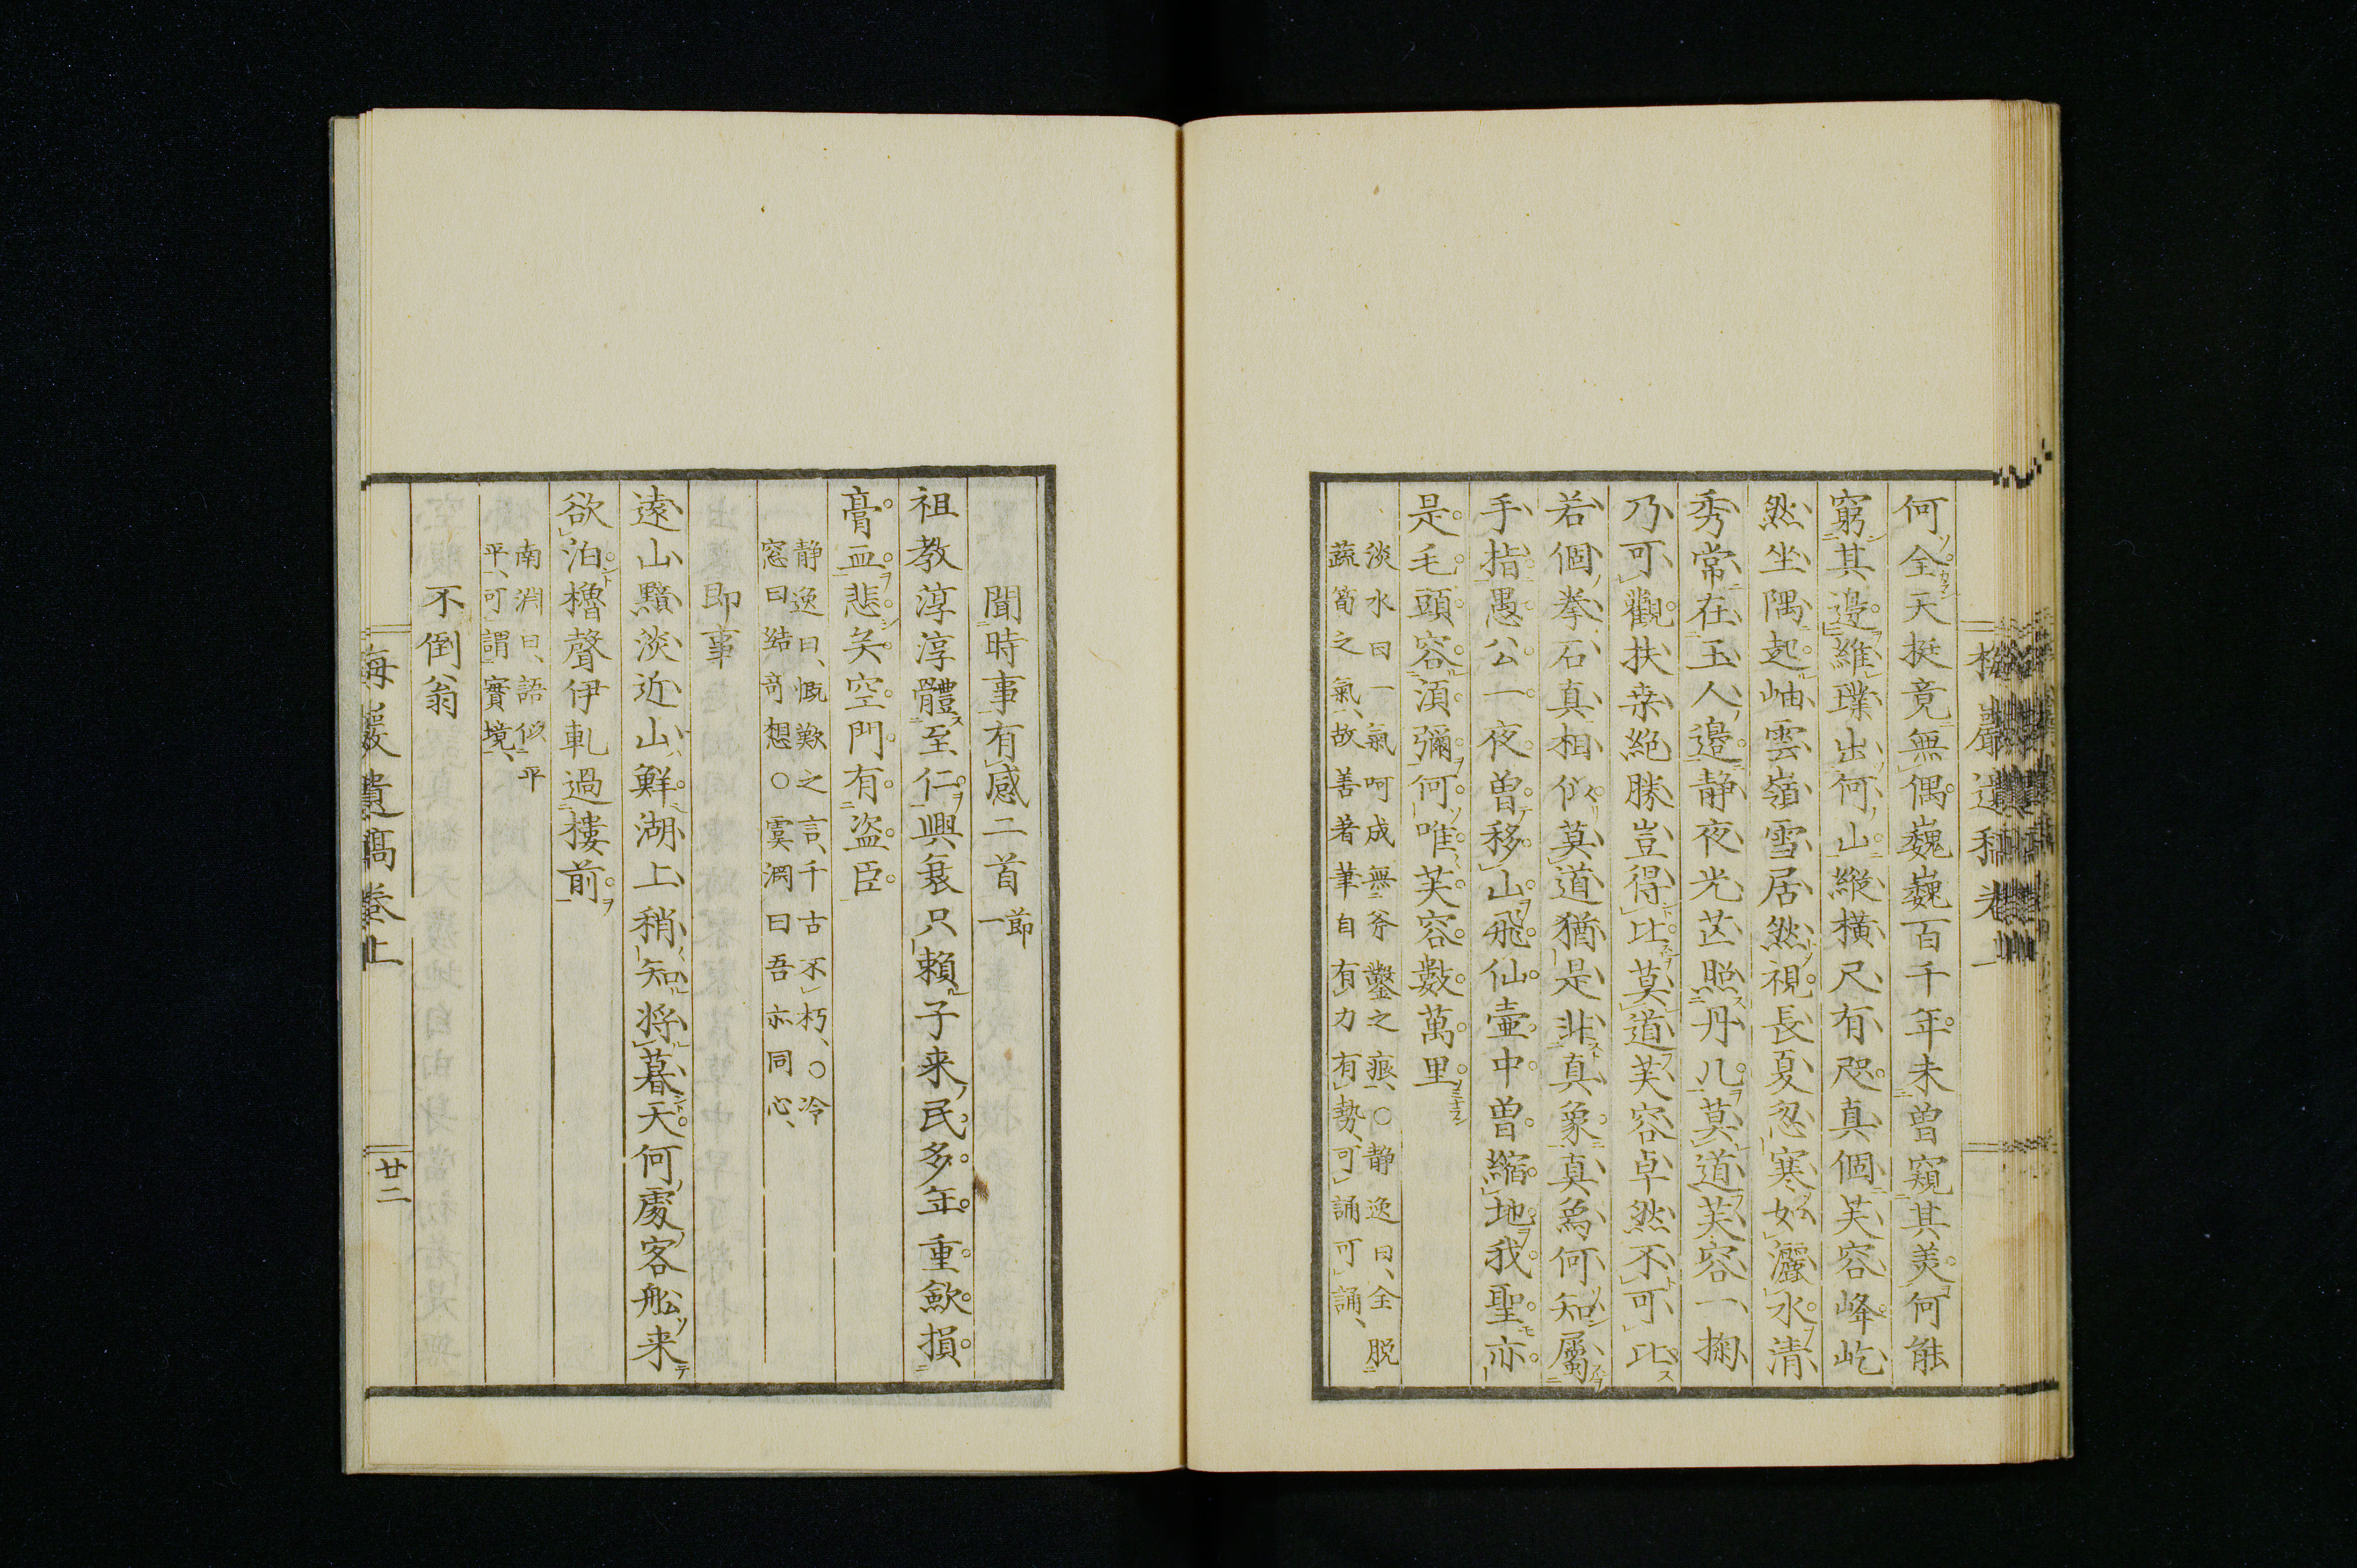 何全天挺竟無偶巍巍百千年未曽窺其美何能
窮其邊維璞出何山縱横尺有咫真個芙容峰屹
然坐隅起岫雲嶺雪居然視長夏忽寒如灑水清
秀常在玉人邊静夜光芒照丹几莫道芙容一掬
乃可觀扶桒絶勝豈得比莫道芙容卓然不可比
若個拳石真相似莫道猶是非真象真爲何知屬
手指愚公一夜曽移山飛仙壷中曽縮地我聖亦
是毛頭容湏彌何唯芙容數萬里
淡水曰一氣呵成無斧鑿之痕、○静逸曰、全脱
蔬筍之氣、故善著筆自有力有勢、可誦可誦、
聞時事有感二首節一
祖教淳淳體至仁興衰只頼子来民多年重歛損
膏血悲矣空門有盗臣
静逸曰、慨歎之言、千古不朽、○冷
窓曰結竒想○雲洞曰吾亦同心、
即事
遠山黯淡近山鮮湖上稍知将暮天何處客舩来
欲泊櫓聲伊軋過樓前
南淵曰、語似平
平、可謂實境、
不倒翁
梅巖遺稿巻上
廿二